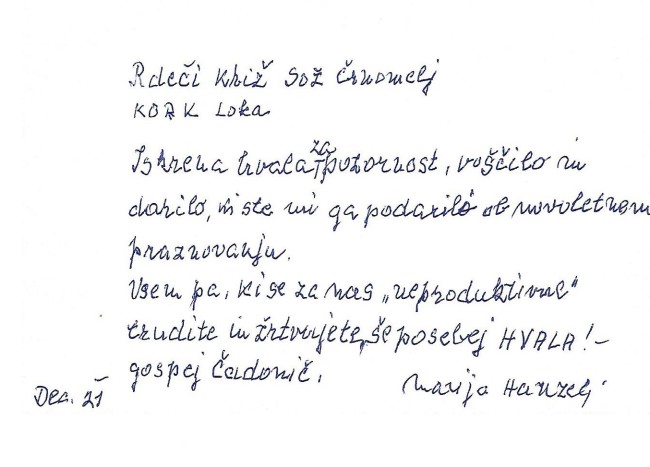 Rdeči križ SOŽ Črnomelj
KORK Loka
Iskrena hvala za pozornost, voščilo in
darilo, ki ste mi ga podarili ob novoletnem
praznovanju.
Vsem pa, ki se za nas „neproduktivne"
trudite in žrtvujete, še posebej HVALA! -
gospej Čadonič.
Marija Hanzelj
Dec. 21